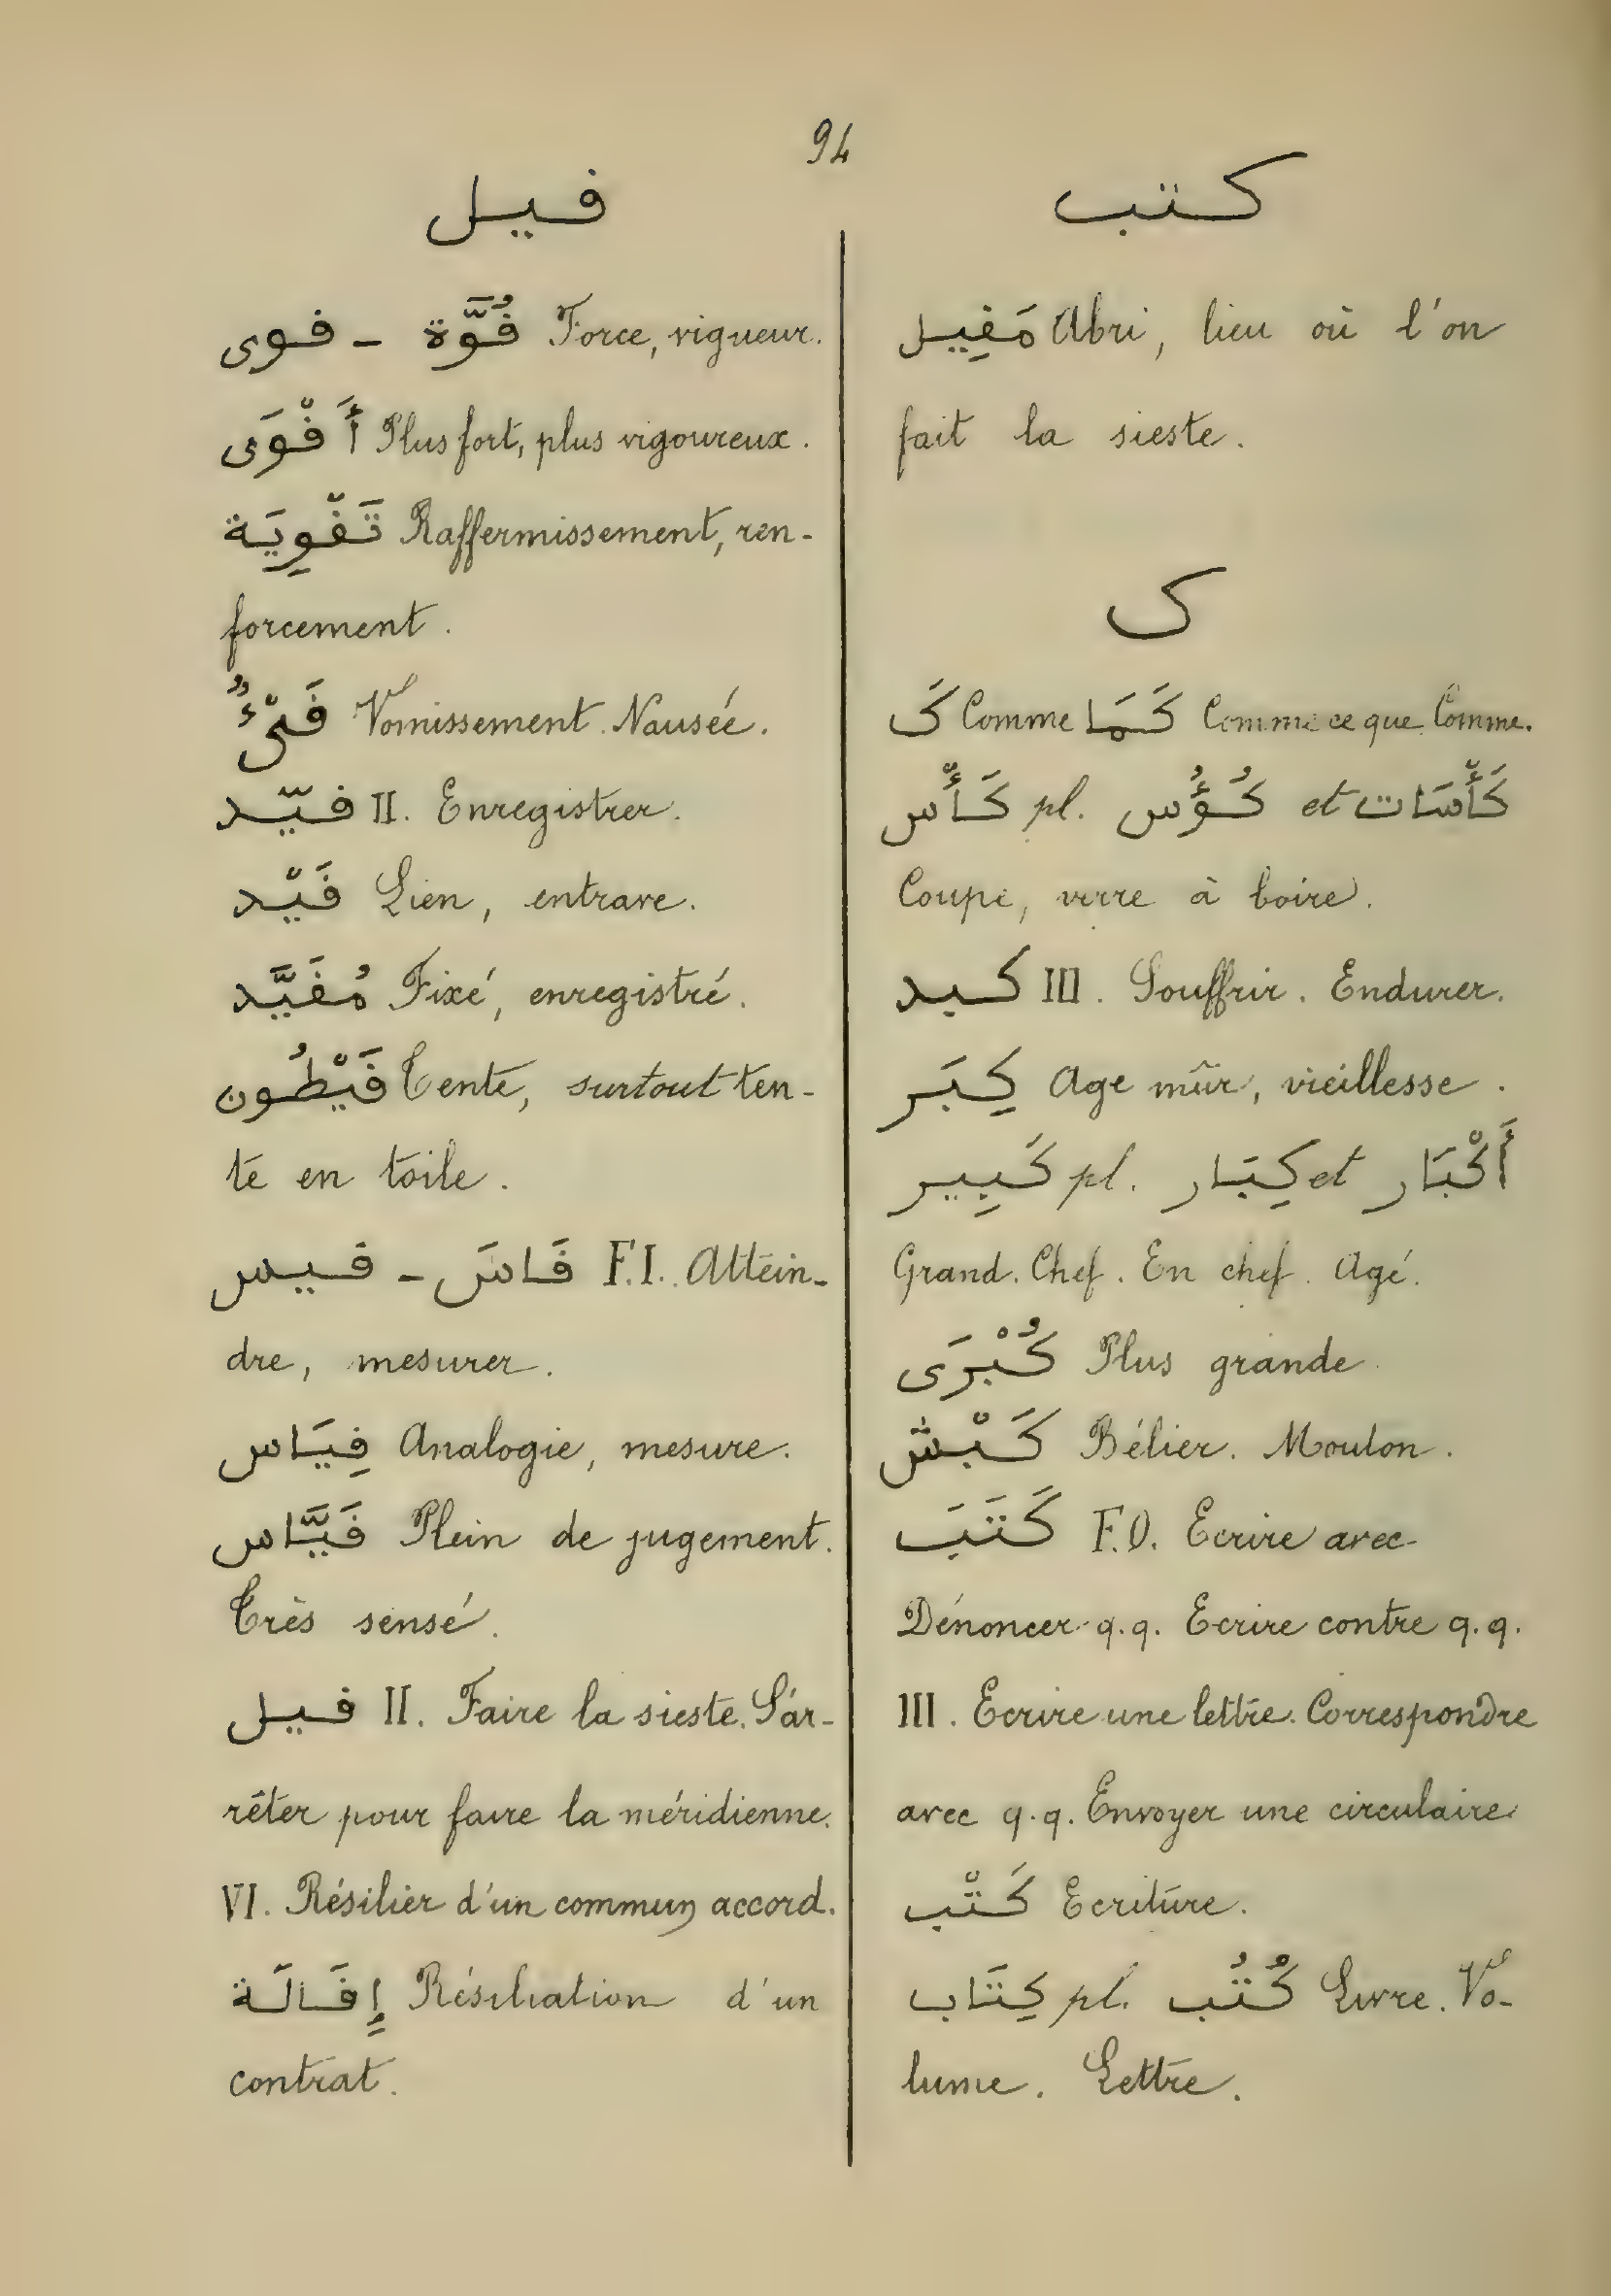 94
قيل
قوى - قُوَّة Force, vigueur.
أَقْوَى Plus fort, plus vigoureux.
تَقْوِيَة Raffermissement, ren-
forcement.
قَيْءٌ Vomissement. Nausée.
قيّد II. Enregistrer.
قَيْد Lien, entrave.
مُقَيَّد Fixé, enregistré.
قَيْطُون Tente, surtout ten-
te en toile.
قيس - قَاسَ F.I. Attein-
dre, mesurer.
قِيَاس Analogie, mesure.
قَيَّاس Plein de jugement.
Très sensé.
قيل II. Faire la sieste. S'ar-
rêter pour faire la méridienne.
VI. Résilier d'un commun accord.
إِقَالَة Résiliation d'un
contrat.
كتب
مَقِيل Abri, lieu où l'on
fait la sieste.
ك
كَ Comme كَمَا Comme ce que. Comme.
كَأْس pl. كُؤُس et كَأْسَات
Coupe, verre à boire.
كبد III. Souffrir. Endurer.
كِبَر Age mûr, vieillesse.
كَبِير pl. كِبَار et أَكْبَار
Grand. Chef. En chef. Agé.
كُبْرَى Plus grande.
كَبْش Bélier. Mouton.
كَتَبَ F.O. Ecrire avec.
Dénoncer q.q. Ecrire contre q.q.
III. Ecrire une lettre. Correspondre
avec q.q. Envoyer une circulaire
كَتْب Ecriture.
كِتَاب pl. كُتُب Livre. Vo-
lume. Lettre.